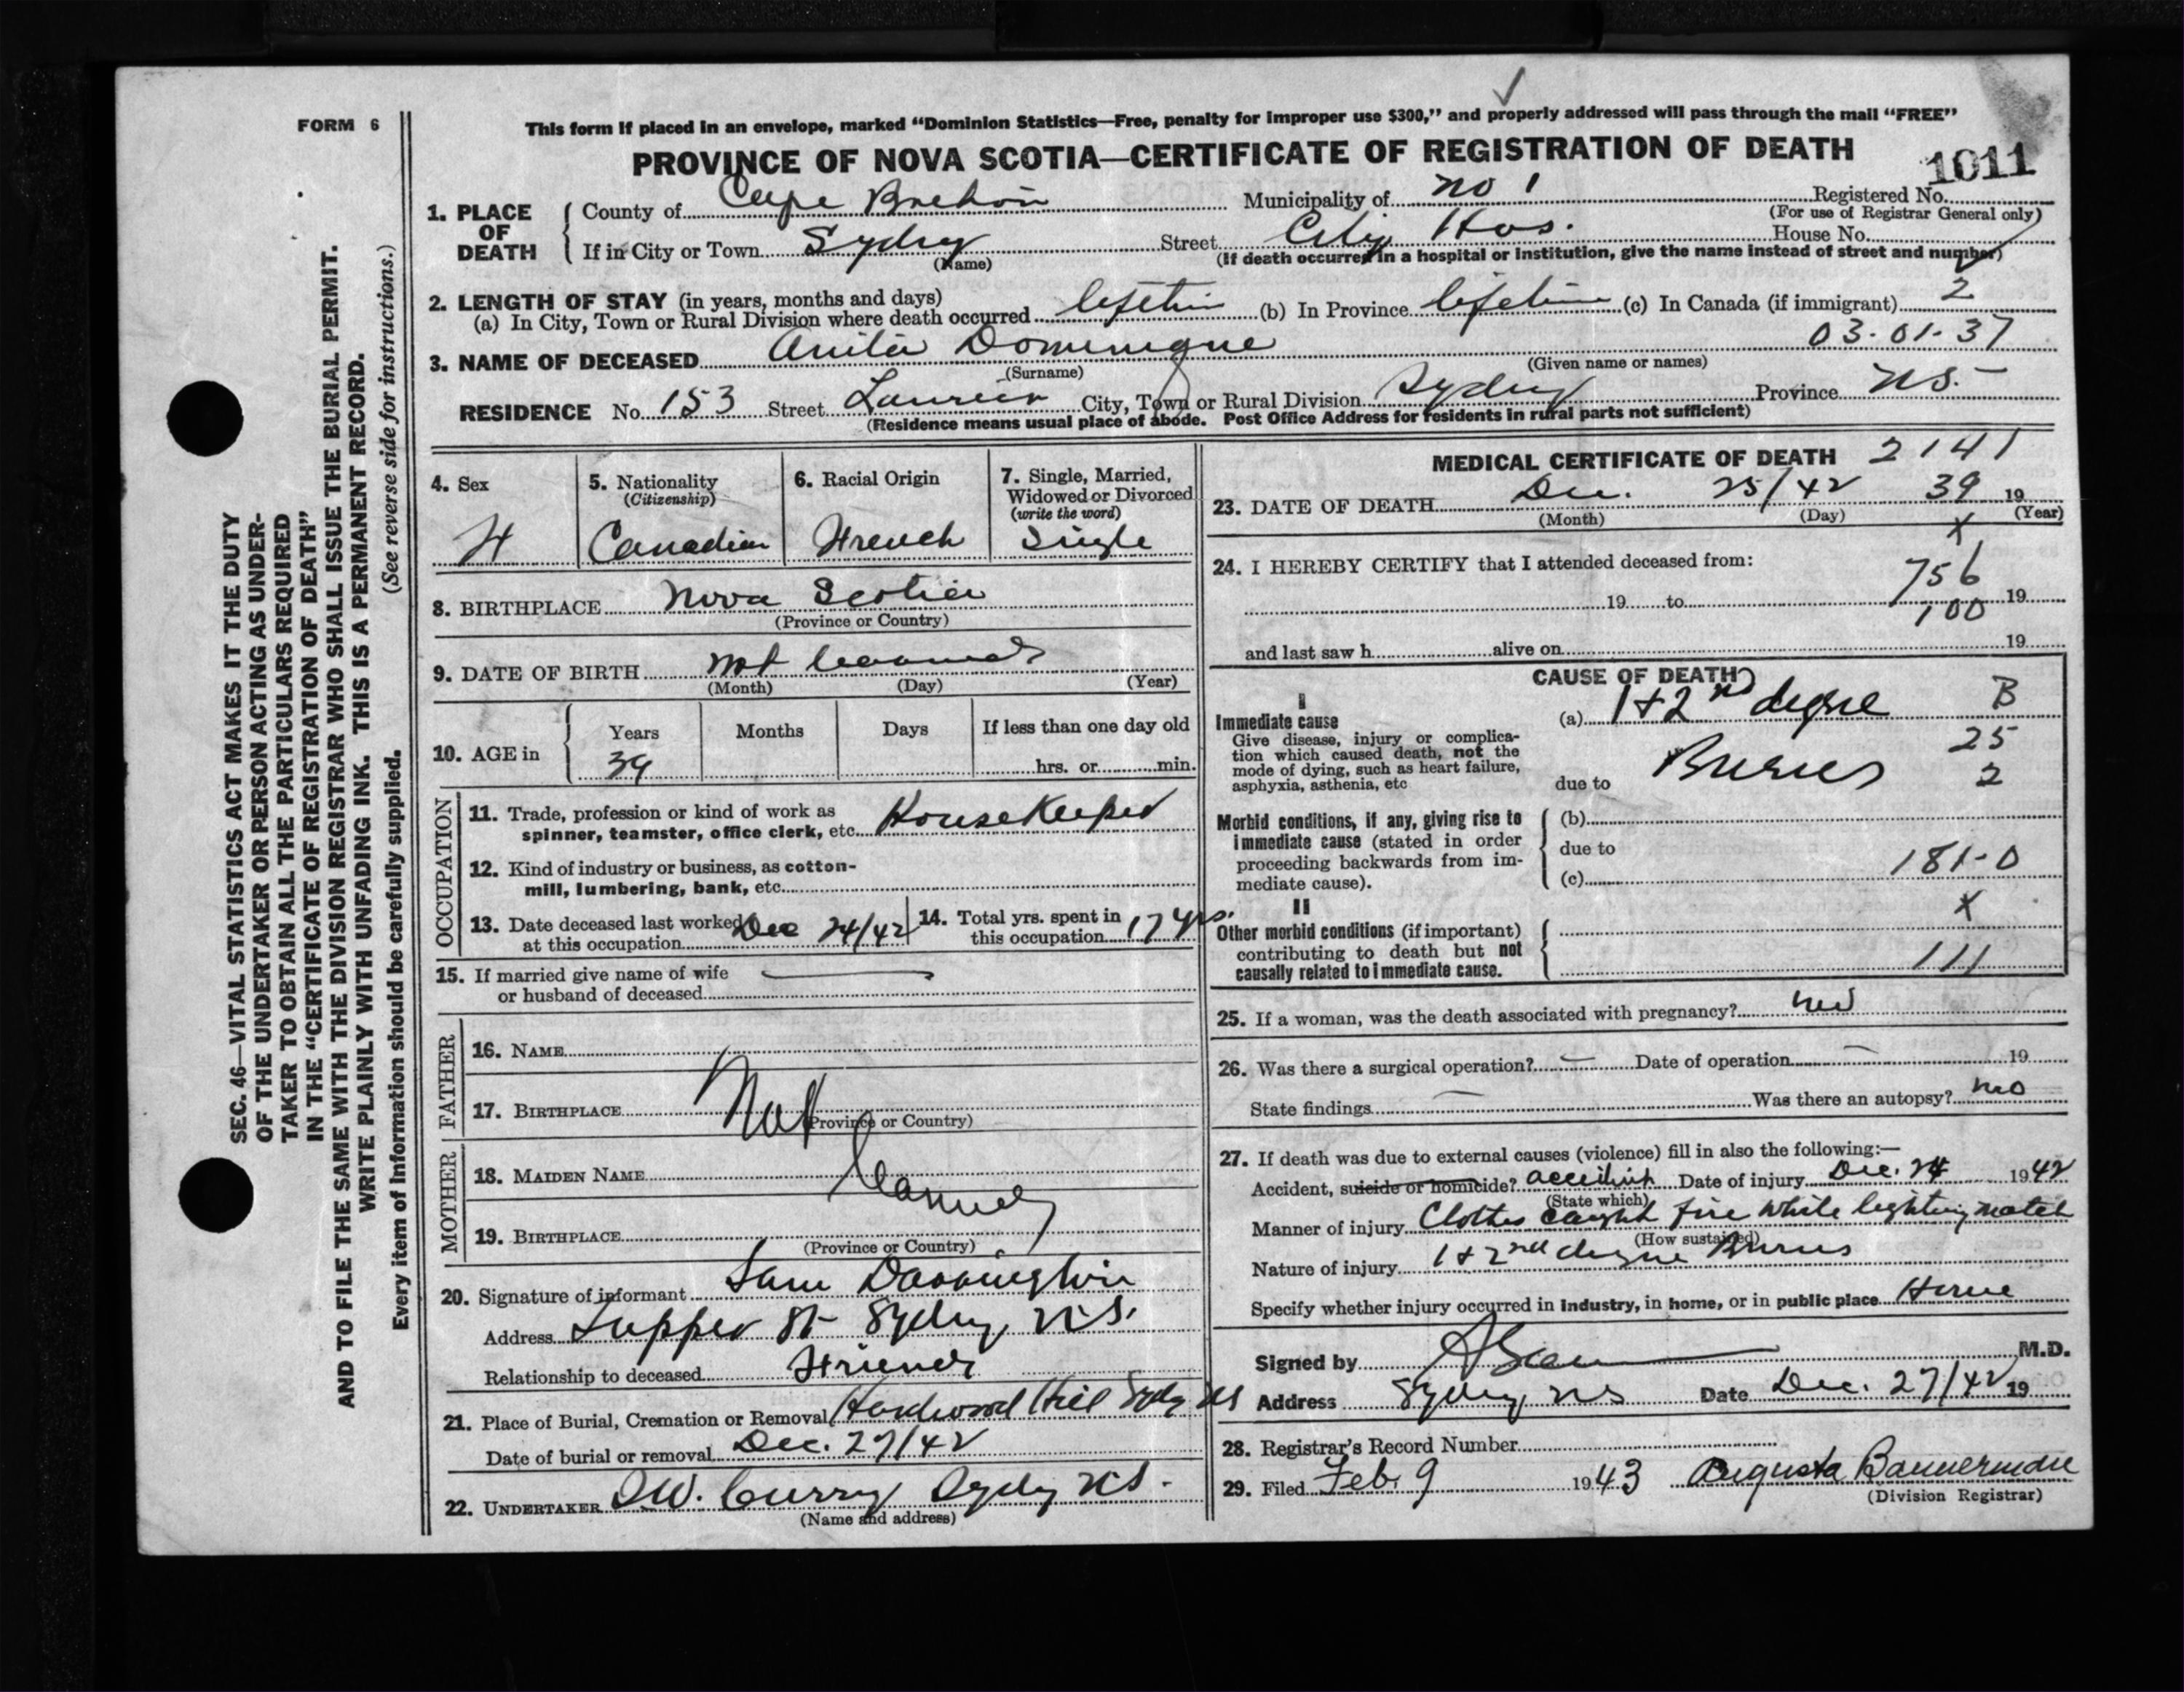 FORM 6
This form if placed in an envelope, marked “Dominion Statistics—Free, penalty for improper use $300,” and properly addressed will pass through the mail “FREE”
PROVINCE OF NOVA SCOTIA—CERTIFICATE OF REGISTRATION OF DEATH
1011
1. PLACE OF DEATH
County of Cape Breton Municipality of No 1 Registered No.
(For use of Registrar General only)
If in City or Town Sydney Street City Hos. House No.
(Name) (If death occurred in a hospital or institution, give the name instead of street and number)
2. LENGTH OF STAY (in years, months and days)
(a) In City, Town or Rural Division where death occurred lifetime (b) In Province lifetime (c) In Canada (if immigrant) 2
03-01-37
3. NAME OF DECEASED Anita Dominique
(Surname) (Given name or names)
RESIDENCE No. 153 Street Laurier City, Town or Rural Division Sydney Province N.S.
(Residence means usual place of abode. Post Office Address for residents in rural parts not sufficient)
4. Sex F
5. Nationality (Citizenship) Canadian
6. Racial Origin French
7. Single, Married, Widowed or Divorced (write the word) Single
8. BIRTHPLACE Nova Scotia
(Province or Country)
9. DATE OF BIRTH not
(Month) (Day) (Year)
10. AGE in Years Months Days If less than one day old
39 hrs. or min.
OCCUPATION
11. Trade, profession or kind of work as spinner, teamster, office clerk, etc. HouseKeeper
12. Kind of industry or business, as cotton-mill, lumbering, bank, etc.
13. Date deceased last worked at this occupation Dec 24/42
14. Total yrs. spent in this occupation 17 yrs.
15. If married give name of wife or husband of deceased
FATHER
16. NAME
17. BIRTHPLACE Not
(Province or Country)
MOTHER
18. MAIDEN NAME
19. BIRTHPLACE
(Province or Country)
20. Signature of informant Sam
Address Tupper St Sydney, N.S.
Relationship to deceased Friend
21. Place of Burial, Cremation or Removal Hardwood Hill Sydney NS
Date of burial or removal Dec. 27/42
22. UNDERTAKER W. Curry Sydney N.S.
(Name and address)
MEDICAL CERTIFICATE OF DEATH 2141
23. DATE OF DEATH Dec. 25/42 39 19
(Month) (Day) (Year)
X
24. I HEREBY CERTIFY that I attended deceased from:
756
19 to 19
100
and last saw h alive on 19
CAUSE OF DEATH
I
Immediate cause
Give disease, injury or complication which caused death, not the mode of dying, such as heart failure, asphyxia, asthenia, etc
(a) 1 & 2nd degree B
25
due to Burns 2
Morbid conditions, if any, giving rise to immediate cause (stated in order proceeding backwards from immediate cause).
(b)
due to
(c) 181-0
II
X
Other morbid conditions (if important) contributing to death but not causally related to immediate cause.
111
25. If a woman, was the death associated with pregnancy? no
26. Was there a surgical operation? — Date of operation — 19
State findings — Was there an autopsy? no
27. If death was due to external causes (violence) fill in also the following:—
Accident, suicide or homicide? accident Date of injury Dec. 24 1942
(State which)
Manner of injury Clothes caught fire while lighting match
(How sustained)
Nature of injury 1 & 2nd degree Burns
Specify whether injury occurred in industry, in home, or in public place Home
Signed by M.D.
Address Sydney, NS Date Dec. 27/42 19
28. Registrar's Record Number
29. Filed Feb. 9 1943 Augusta Bannerman
(Division Registrar)
SEC. 46—VITAL STATISTICS ACT MAKES IT THE DUTY
OF THE UNDERTAKER OR PERSON ACTING AS UNDER-
TAKER TO OBTAIN ALL THE PARTICULARS REQUIRED
IN THE “CERTIFICATE OF REGISTRATION OF DEATH”
AND TO FILE THE SAME WITH THE DIVISION REGISTRAR WHO SHALL ISSUE THE BURIAL PERMIT.
WRITE PLAINLY WITH UNFADING INK. THIS IS A PERMANENT RECORD.
(See reverse side for instructions.)
Every item of information should be carefully supplied.